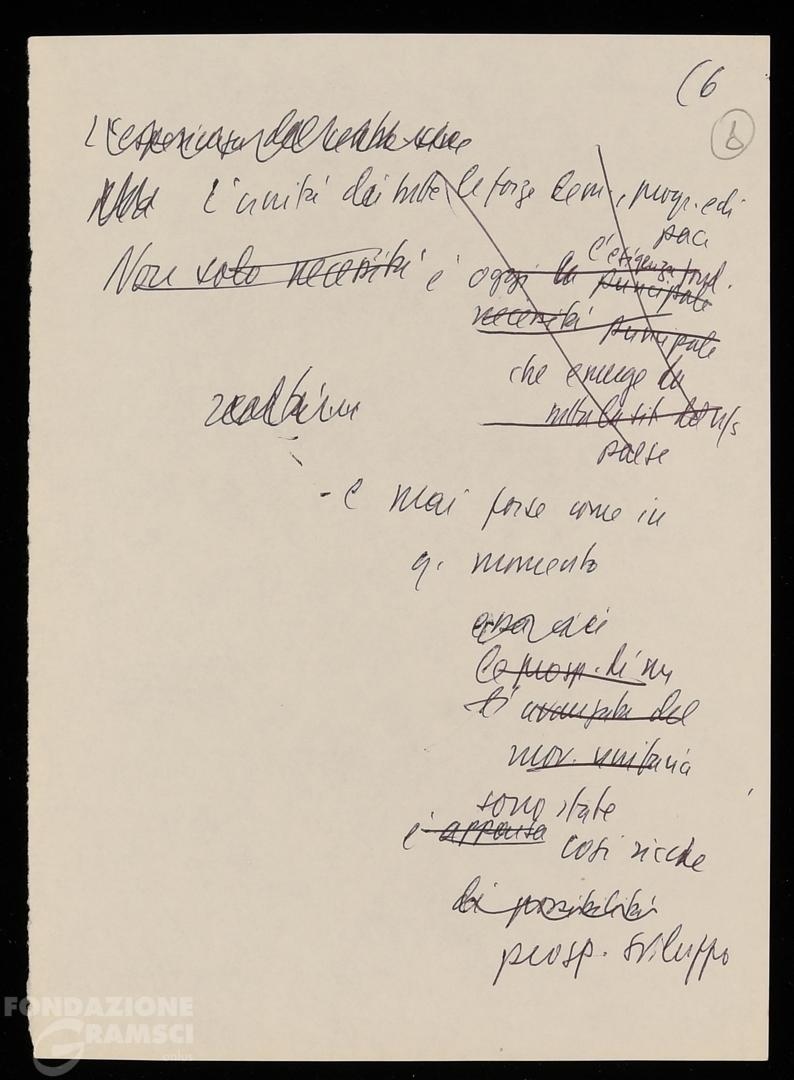 (6
6
L'esperienza
l'unità di tutte le forze dem., progr. e di
pace
Non solo necessità è oggi la principale
l'esigenza fond.
necessità principale
che emerge da
paese
- e mai forse come in
q. momento
le prosp. di un
l'avanzata del
mov. unitaria
sono state
è apparsa così ricche
di possibilità
prosp. sviluppo
FONDAZIONE
GRAMSCI
onlus